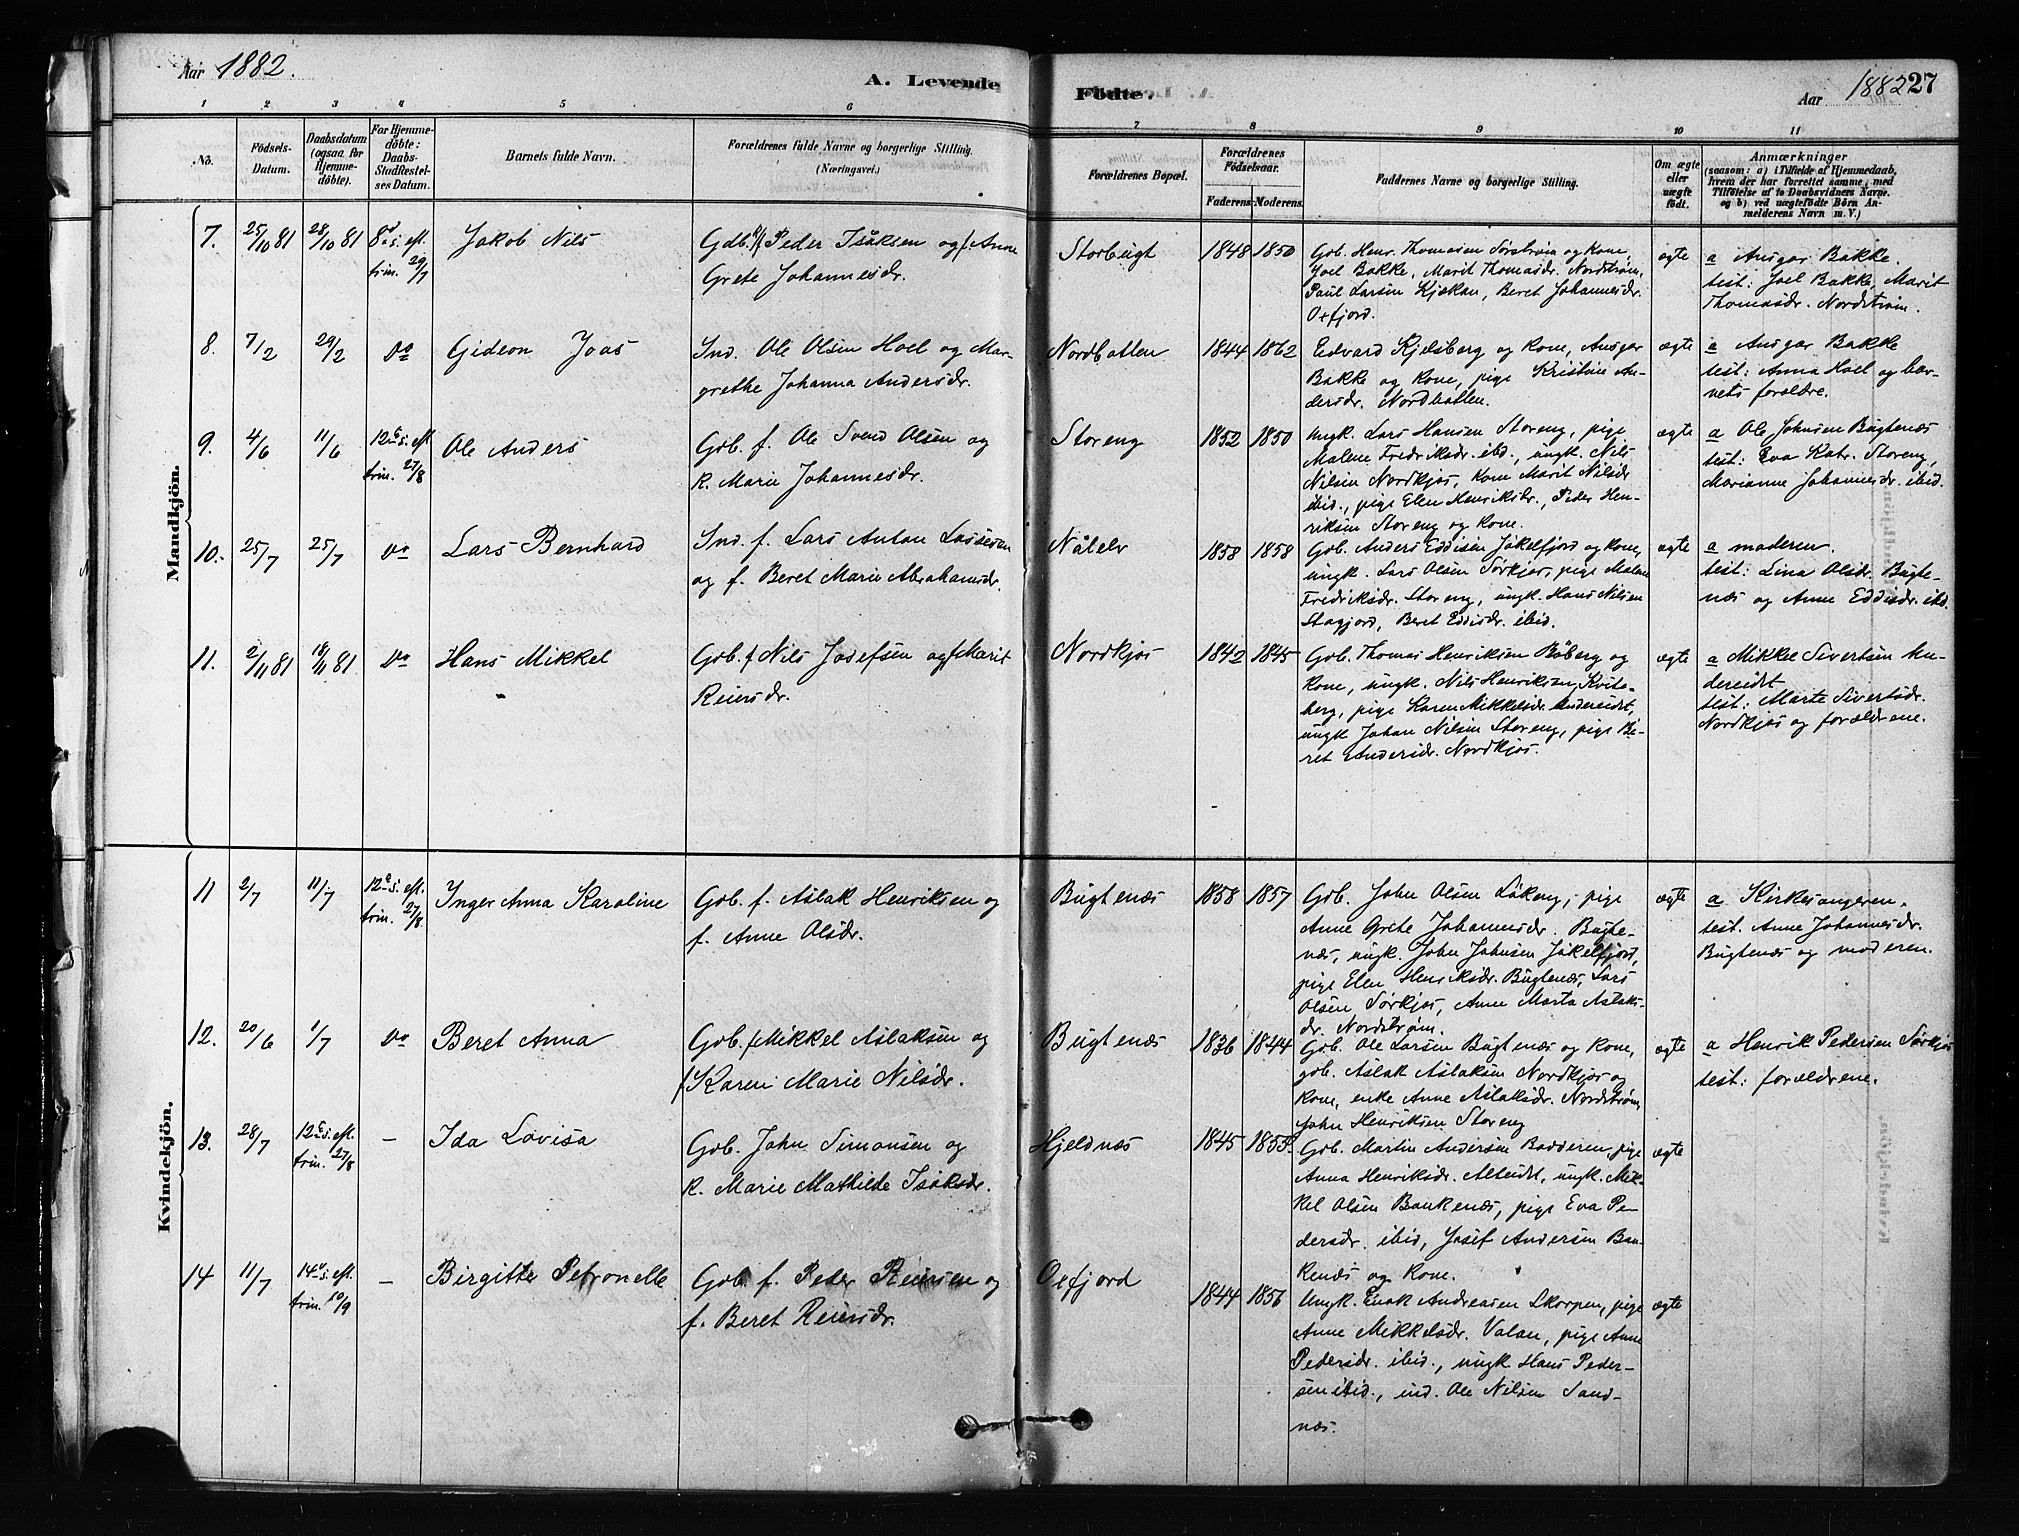 Aar 1882.
A. Levende
Födte.
Aar 1882 27
1 2 3 4 5 6 7 8 9 10 11
No.
Födsels-Datum.
Daabsdatum (ogsaa for Hjemme-döbte).
For Hjemme-döbte: Daabs-Stadfæstel-ses Datum.
Barnets fulde Navn.
Forældrenes fulde Navne og borgerlige Stilling.
(Næringsvei.)
Forældrenes Bopæl.
Forældrenes Födselsaar.
Faderens Moderens.
Faddernes Navne og borgerlige Stilling.
Om ægte eller uægte födt.
Anmærkninger
(saasom: a) i Tilfælde af Hjemmedaab,
hvem der har forrettet samme, med
Tilföielse af to Daabsvidners Navne.
og b) ved uægtefödte Börn An-
melderens Navn m. V.)
Mandkjön.
7. 25/10 81 28/10 81 8d s. eft. trin. 29/7
Jakob Nils
Gdb. f Peder Isaksen og f Anne
Grete Johannesdr.
Storbugt
1848 1850
Gb. Henr. Thomasen Sørstrøm og kone,
Joel Bakke, Marit Thomasdr. Nordstrøm,
Paul Larsen Kjækan, Beret Johannesdr.
Oxfjord.
ægte
a Ansgar Bakke.
test: Joel Bakke, Marit
Thomasdr. Nordstrøm.
8. 7/2 29/2 Do
Gideon Joas
Ind. Ole Olsen Hoel og Mar-
grethe Johanna Andersdr.
Nordbotten
1844 1862
Edvard Kjelsberg og kone, Ansgar
Bakke og kone, pige Kristine An-
dersdr. Nordbotten.
ægte
a Ansgar Bakke
test: Anna Hoel og bar-
nets forældre.
9. 4/6 11/6 12e s. eft trin. 27/8
Ole Anders
Gdb. f. Ole Svend Olsen og
k. Marie Johannesdr.
Storeng
1852 1850
Ungk. Lars Hansen Storeng, pige
Malene Fredriksdr. ibd., ungk. Nils
Nilsen Nordkjos, kone Marit Nilsdr
ibid., pige Elen Henriksdr., Peder Hen-
riksen Storeng og kone.
ægte
a Ole Johnsen Bugtenæs
test: Eva Katr. Storeng,
Marianne Johannesdr. ibid.
10. 25/7 25/7 Do
Lars Bernhard
Ind. f. Lars Anton Lassesen
og f. Beret Marie Abrahamsdr.
Nålelv
1858 1858
Gb. Anders Eddisen Jøkelfjord og kone,
ungk. Lars Olsen Sørkjos, pige Malene
Fredriksdr. Storeng, ungk. Hans Nilsen
Stagjord, Beret Eddisdr. ibid.
ægte
a moderen.
test: Lina Olsdr. Bugte-
næs og Anne Eddisdr. ibd.
11. 2/11 81 18/11 81 Do
Hans Mikkel
Gdb. f Nils Josefsen og f Marit
Reiersdr.
Nordkjos
1842 1845
Gb. Thomas Henriksen Røberg og
kone, ungk. Nils Henriksen Kvite-
berg, pige Karen Mikkelsdr. Andereidet,
ungk Johan Nilsen Storeng, pige Be-
ret Andersdr. Nordkjos.
ægte
a Mikkel Sivertsen An-
dereidet
test: Marte Sivertsdr.
Nordkjos og forældrene.
Kvindekjön.
11 2/7 11/7 12e s. eft. trin. 27/8.
Inger Anna Karoline
Gdb. f. Aslak Henriksen og
f. Anne Olsdr.
Bugtenæs
1858 1857
Gb. John Olsen Løkeng, pige
Anne Grete Johannesdr. Bugte-
næs, ungk. John Johnsen Jøkelfjord,
pige Elen Henriksdr. Bugtenæs, Lars
Olsen Sørkjos, Anne Marta Aslaks-
dr. Nordstrøm.
ægte
a Kirkesangeren.
test. Anne Johannesdr.
Bugtenæs og moderen.
12. 20/6 1/7 Do
Beret Anna
Gdb. f Mikkel Aslaksen og
f Karen Marie Nilsdr.
Bugtenæs
1836 1844
Gb. Ole Larsen Bugtenæs og kone,
gb. Aslak Aslaksen Nordkjos og
kone, enke Anne Aslaksdr. Nordstrøm,
John Henriksen Storeng
ægte
a Henrik Pedersen Sørkjos
test: forældrene.
13. 28/7 12e s. eft. trin. 27/8 –
Ida Lovisa
Gdb. John Simonsen og
k. Marie Mathilde Isaksdr.
Hjeldnæs
1845 1855
Gb. Martin Andersen Badderen, pige
Anna Henriksdr. Alteidet, ungk. Mik-
kel Olsen Bankenæs, pige Eva Pe-
dersdr. ibid, Josef Andersen Ban-
kenæs og kone.
ægte
14 11/7 14de s. eft. trin. 10/9 –
Birgitte Petronelle
Gdb. f. Peder Reiersen og
f. Beret Reiersdr.
Oxfjord
1844 1856
Ungk. Enok Andreasen Skorpen, pige
Anne Mikkelsdr. Valan, pige Anne
Pedersdr. ibid., ungk Hans Peder-
sen ibid., ind. Ole Nilsen Sand-
næs.
ægte